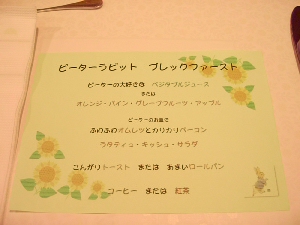 ピーターラビット　ブレックファースト
ピーターの大好きな　ベジタブルジュース
または
オレンジ・パイン・グレープフルーツ・アップル
ピーターのお皿で
ふわふわオムレツとカリカリベーコン
ラタティユ・キッシュ・サラダ
こんがりトースト　または　あまいロールパン
コーヒー　または　紅茶